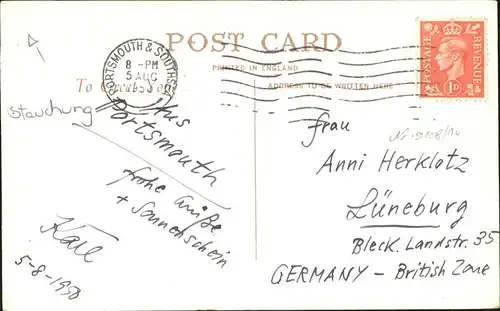 POST CARD
PRINTED IN ENGLAND
ADDRESS TO BE WRITTEN HERE
PORTSMOUTH & SOUTHSEA
8 - PM
5 AUG
POSTAGE
REVENUE
1D
Stauchung
Aus
Portsmouth
frohe Grüße
+ Sonnenschein
Karl
5-8-1950
Frau
Anni Herklotz
Lüneburg
Bleck. Landstr. 35
GERMANY - British Zone